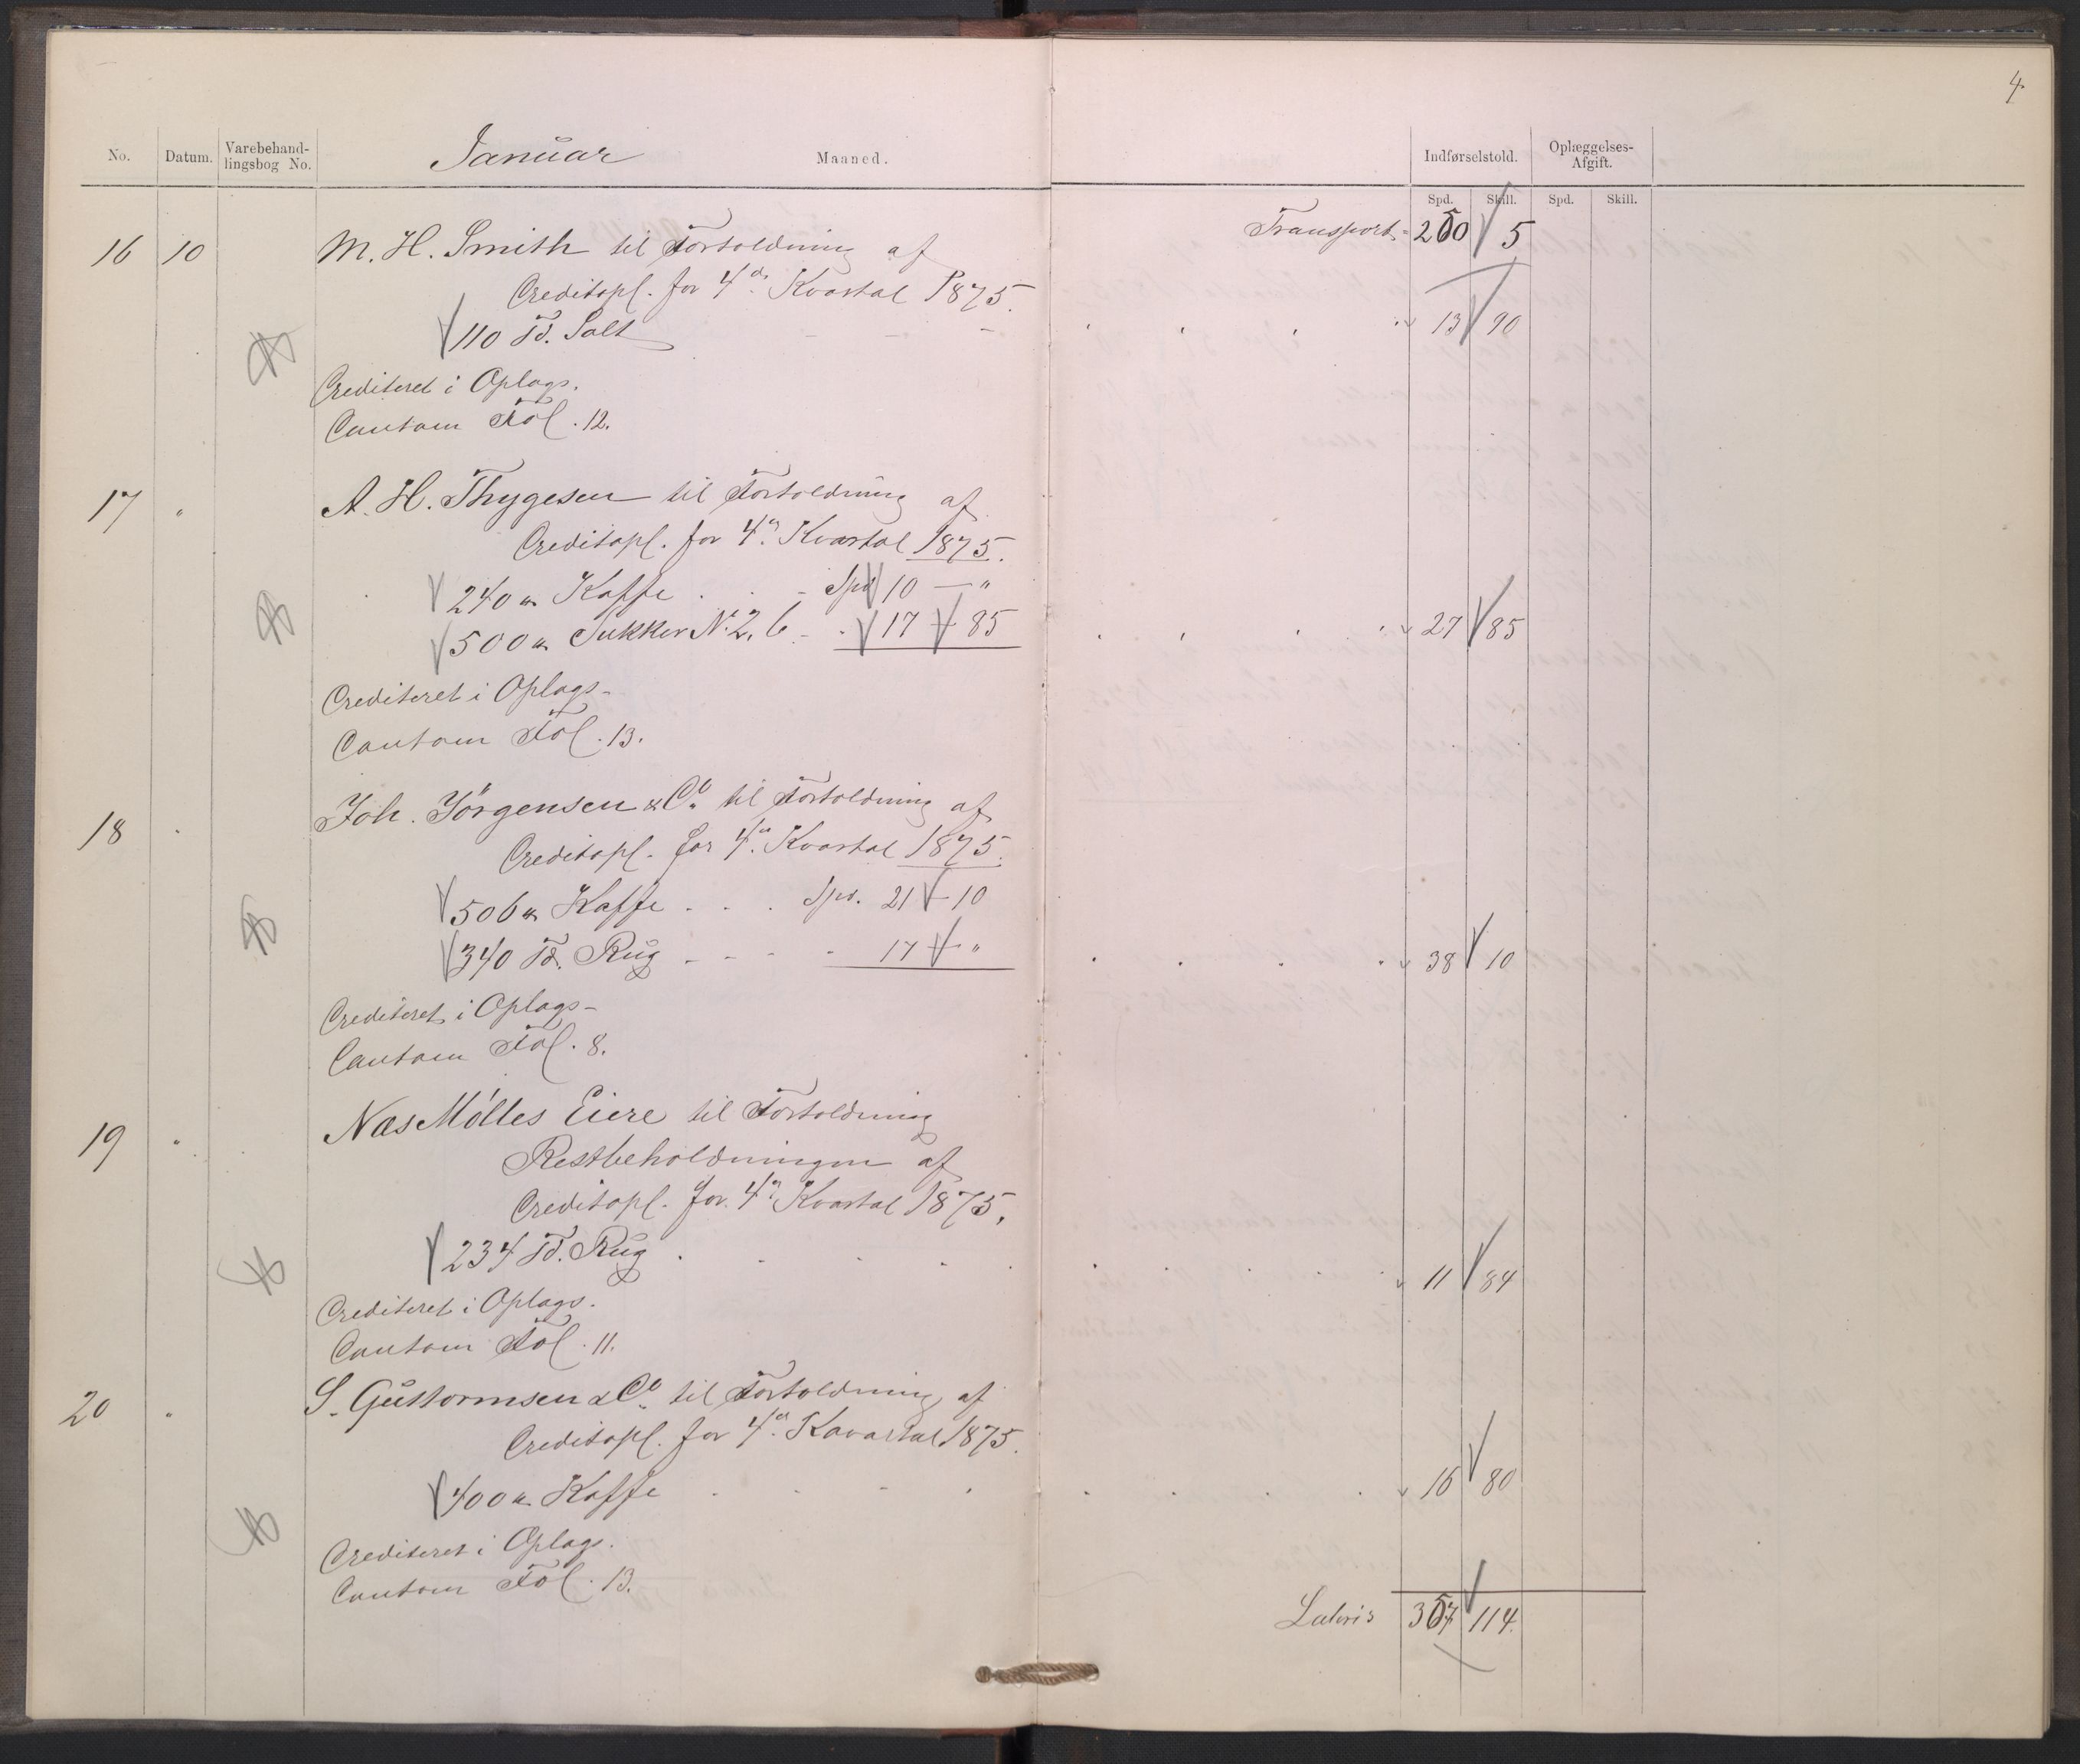 4
No. Datum. Varebehand-lingsbog No. Januar Maaned. Indførselstold. Oplæggelses-Afgift.
Spd. Skill. Spd. Skill.
Transport 250 5
16 10 M. H. Smith til Fortoldning af
Creditopl. for 4de Kvartal 1875.
110 Td. Salt 13 90
Crediteret i Oplags.
Contoen Fol. 12.
17 " A. H. Thygesen til Fortoldning af
Creditopl. for 4de Kvartal 1875.
240 ℔ Kaffe Spd 10 — "
500 ℔ Sukker No 2, b 17 — 85 27 85
Crediteret i Oplags-
Contoen Fol. 13.
18 " Joh. Jörgensen & Co til Fortoldning af
Creditopl. for 4de Kvartal 1875.
506 ℔ Kaffe Spd. 21 — 10
340 Td. Rug 17 — " 38 10
Crediteret i Oplags-
Contoen Fol. 8.
19 " Næs Mölles Eiere til Fortoldning
Restbeholdningen af
Creditopl. for 4de Kvartal 1875.
234 Td. Rug 11 84
Crediteret i Oplags.
Contoen Fol. 11.
20 " S. Gustormsen & Co til Fortoldning af
Creditopl. for 4de Kavartal 1875.
400 ℔ Kaffe 16 80
Crediteret i Oplags.
Contoen Fol. 13.
Lateris 357 114